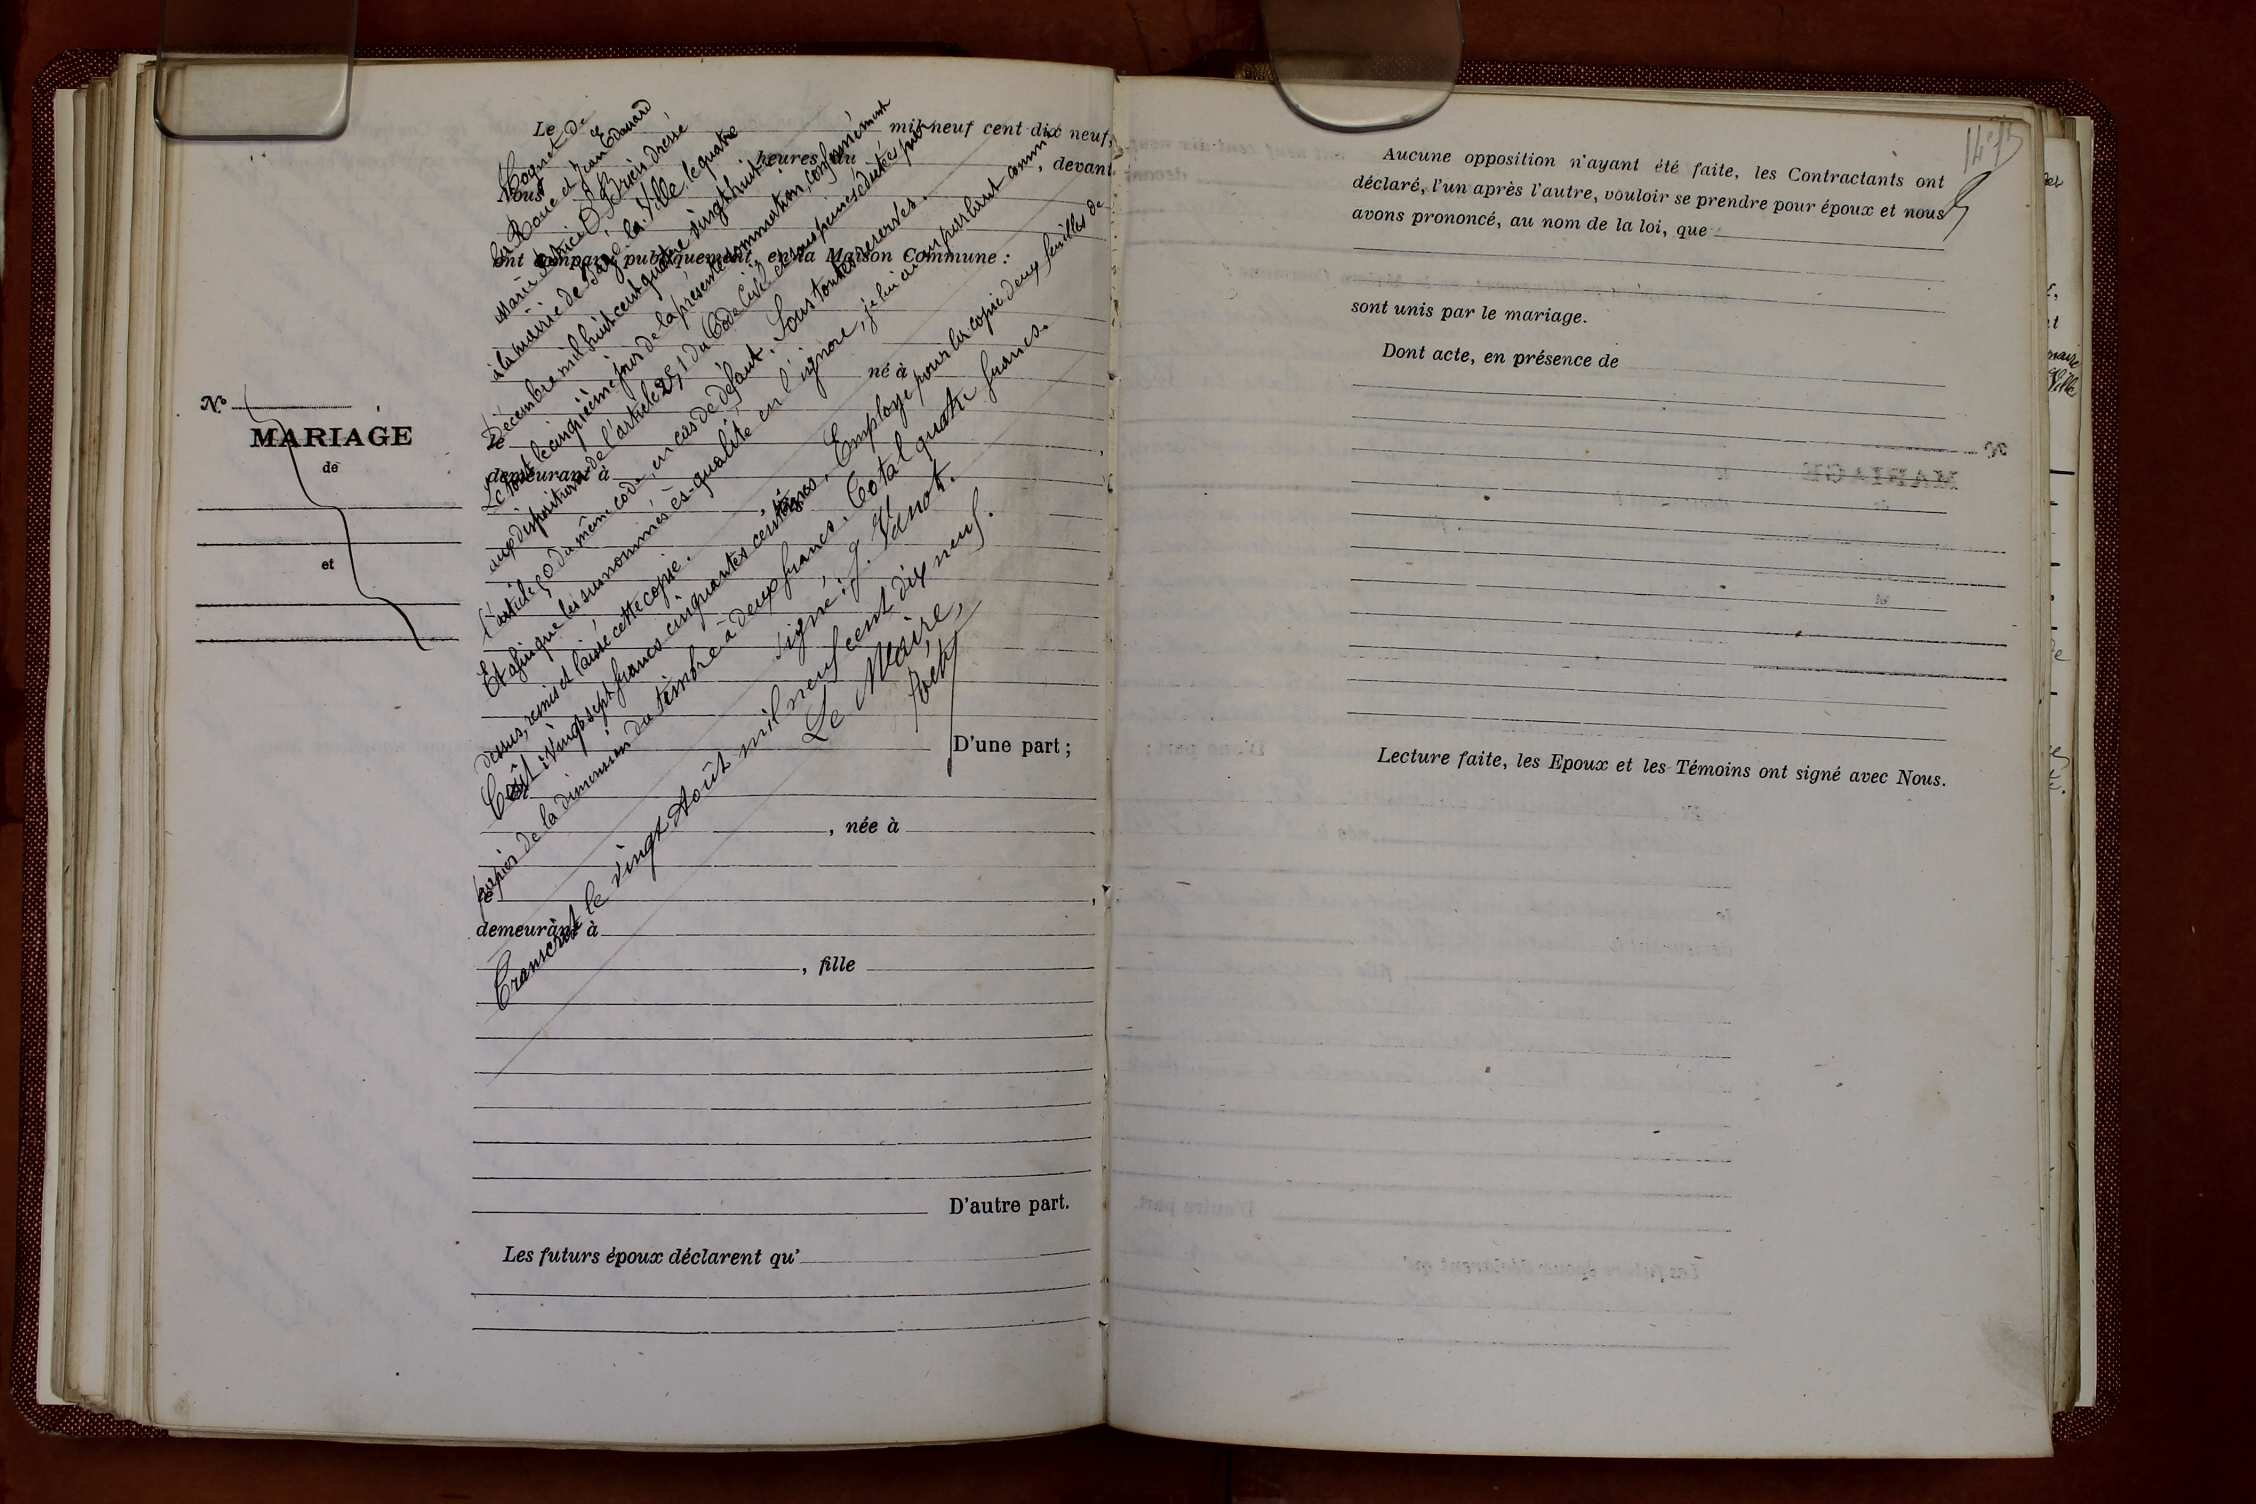 Le mil neuf cent dix neuf,
heures du
Nous , devant
ont comparu publiquement, en la Maison Commune :
né à
le
demeurant à
D'une part ;
, née à
le
demeurant à
, fille
D'autre part.
Les futurs époux déclarent qu'
Nº
MARIAGE
de
et
Coquet de
la Roue et Jean Edouard
Marie Patrice O' Brien dressé
à la mairie de Bagé la Ville le quatre
Décembre mil huit cent quatre vingt huit
Le tout le cinquième jour de la présente sommation, conformément
aux dispositions de l'article 251 du Code Civil et sous peines édictées par
l'article 50 du même code, en cas de défaut. Sous toutes réserves.
Et afin que les susnommés ès-qualité n'en l'ignore, je lui ai en parlant comme
dessus, remis et laissé cette copie.
Coût : vingt sept francs cinquantes centimes, Employé pour la copie deux feuilles de
papier de la dimension du timbre à deux francs. Total quatre francs.
signé : J. Vanot.
Transcrit le vingt Août mil neuf cent dix neuf.
Le Maire,
Aucune opposition n'ayant été faite, les Contractants ont
déclaré, l'un après l'autre, vouloir se prendre pour époux et nous
avons prononcé, au nom de la loi, que
sont unis par le mariage.
Dont acte, en présence de
Lecture faite, les Epoux et les Témoins ont signé avec Nous.